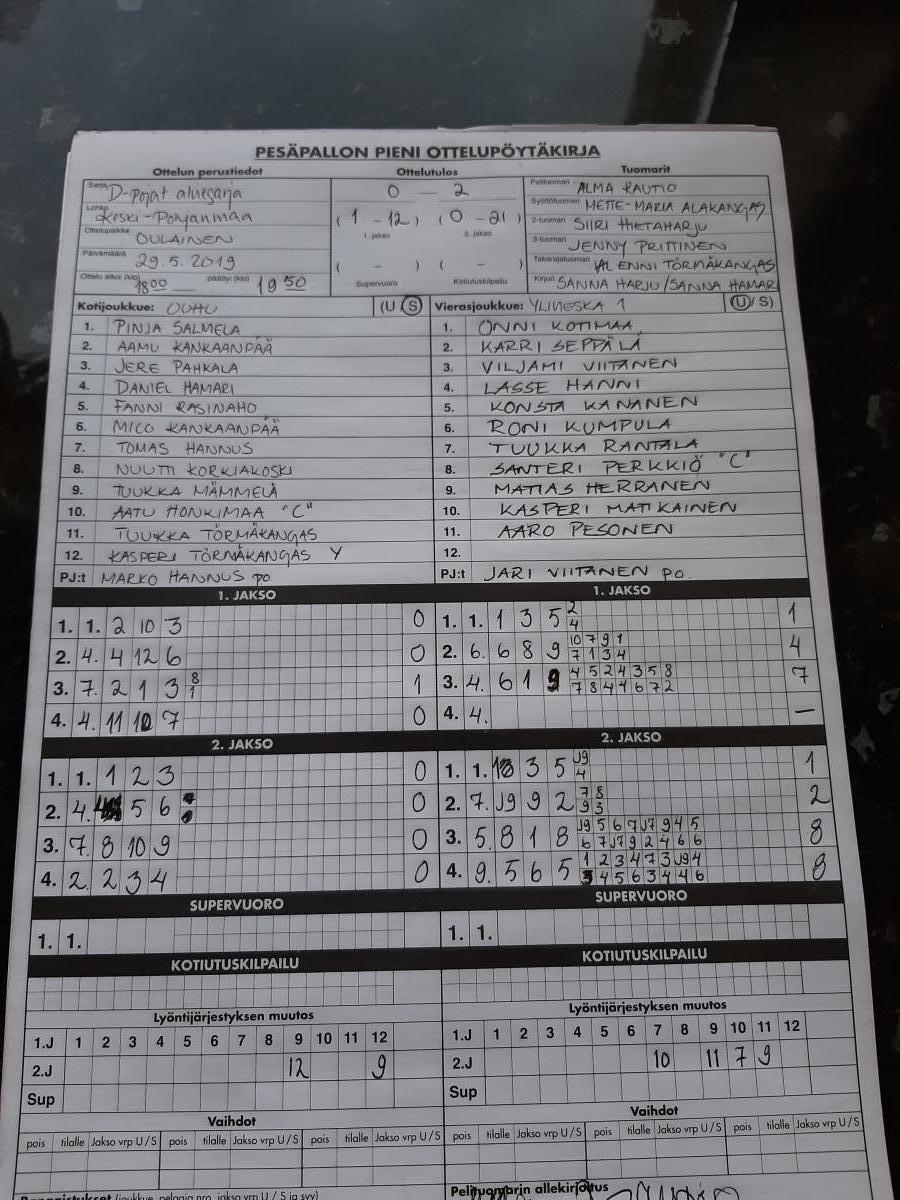 PESÄPALLON PIENI OTTELUPÖYTÄKIRJA
Ottelun perustiedot Ottelutulos Tuomarit
Sarja D-pojat aluesarja 0 - 2 Pelituomari ALMA RAUTIO
Lohko Keski-Pohjanmaa (1 - 12) (0 - 21) Syöttötuomari METTE-MARIA ALAKANGAS
Ottelupaikka OULAINEN 1. jakso 2. jakso 2-tuomari SIIRI HIETAHARJU
Päivämäärä 29.5.2019 ( - ) ( - ) 3-tuomari JENNY PRITTINEN
Takarajatuomari ENNI TÖRMÄKANGAS
Ottelu alkoi (klo) 18 00 päättyi (klo) 19 50 Supervuoro Kotiutuskilpailu Kirjuri SANNA HARJU/SANNA HAMARI
Kotijoukkue: OUHU (U S) Vierasjoukkue: YLIVIESKA 1 (U/S)
1. PINJA SALMELA 1. ONNI KOTIMAA
2. AAMU KANKAANPÄÄ 2. KARRI SEPPÄLÄ
3. JERE PAHKALA 3. VILJAMI VIITANEN
4. DANIEL HAMARI 4. LASSE HANNI
5. FANNI RASINAHO 5. KONSTA KANANEN
6. MICO KANKAANPÄÄ 6. RONI KUMPULA
7. TOMAS HANNUS 7. TUUKKA RANTALA
8. NUUTTI KORKIAKOSKI 8. SANTERI PERKKIÖ "C"
9. TUUKKA MÄMMELÄ 9. MATIAS HERRANEN
10. AATU HONKIMAA "C" 10. KASPERI MATIKAINEN
11. TUUKKA TÖRMÄKANGAS 11. AARO PESONEN
12. KASPERI TÖRMÄKANGAS Y 12.
PJ:t MARKO HANNUS po PJ:t JARI VIITANEN po.
1. JAKSO 1. JAKSO
1. 1. 2 10 3 0 1. 1. 1 3 5 2 4 1
2. 4. 4 12 6 0 2. 6. 6 8 9 10 7 9 1 7 1 3 4 4
3. 7. 2 1 3 8 1 1 3. 4. 6 1 9 4 5 2 4 3 5 8 7 8 4 4 6 7 2 7
4. 4. 11 10 7 0 4. 4. –
2. JAKSO 2. JAKSO
1. 1. 1 2 3 0 1. 1. 3 5 J9 4 1
2. 4. 5 6 0 2. 7. J9 9 2 7 8 9 3 2
3. 7. 8 10 9 0 3. 5. 8 1 8 J9 5 6 7 J7 9 4 5 6 7 J7 9 2 4 6 6 8
4. 2. 2 3 4 0 4. 9. 5 6 5 1 2 3 4 7 3 J9 4 3 4 5 6 3 4 4 6 8
SUPERVUORO SUPERVUORO
1. 1. 1. 1.
KOTIUTUSKILPAILU KOTIUTUSKILPAILU
Lyöntijärjestyksen muutos Lyöntijärjestyksen muutos
1.J 1 2 3 4 5 6 7 8 9 10 11 12 1.J 1 2 3 4 5 6 7 8 9 10 11 12
2.J 12 9 2.J 10 11 7 9
Sup Sup
Vaihdot Vaihdot
pois tilalle Jakso vrp U/S pois tilalle Jakso vrp U/S pois tilalle Jakso vrp U/S pois tilalle Jakso vrp U/S pois tilalle Jakso vrp U/S pois tilalle Jakso vrp U/S
Rangaistukset (joukkue, pelaaja nro, jakso vrp U / S ja syy) Pelituomarin allekirjoitus